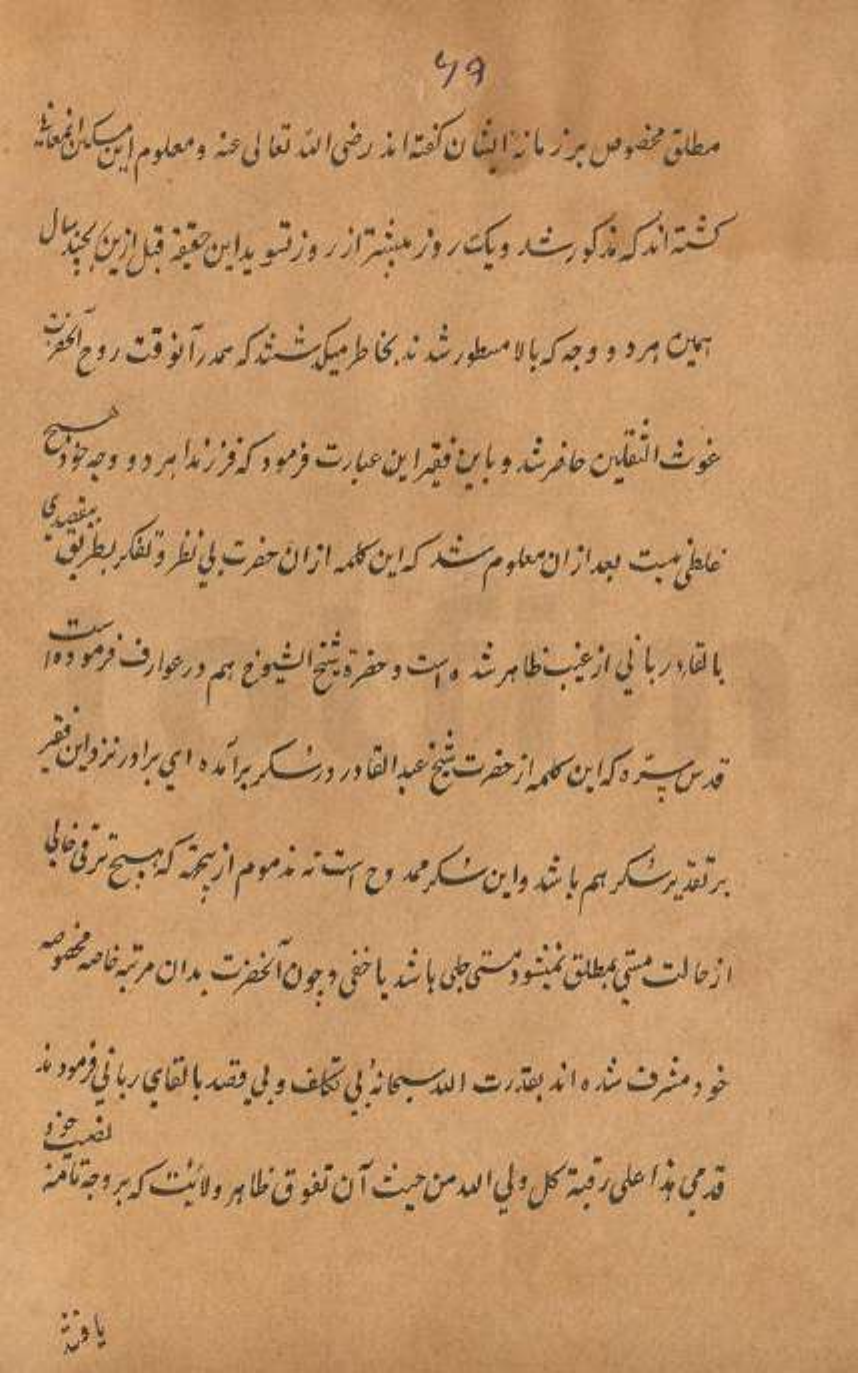 ۶۹
مطلق مخصوص بر زمانهٔ ایشان گفته اند رضی الله تعالی عنه و معلوم این مسکین
گشته اند که مذکور شد و یک روز پیشتر از روز تسوید این حقیقه قبل ازین بچند سال
همین هر دو وجه که بالا مسطور شدند بخاطر میگذشتند که همدرآنوقت روح آنحضرت
غوث الثقلین حاضر شد و باین فقیر این عبارت فرمود که فرزندا هر دو وجه خود هیچ
غلطی نیست بعد ازان معلوم شد که این کلمه ازان حضرت بی نظر و تفکر بطریق بیقصدی
بالقاء ربانی از غیب ظاهر شده است و حضرة شیخ الشیوخ هم در عوارف فرموده است
قدس سره که این کلمه از حضرت شیخ عبد القادر در سکر برآمده ای برادر نزد این فقیر
بر تقدیر سکر هم باشد و این سکر ممدوح است نه مذموم ازینجهة که هیچ ترقی خالی
از حالت مستی مطلق نمیشود مستی جلی باشد یا خفی و چون آنحضرت بدان مرتبه خاصه مخصوصه
خود مشرف شده اند بقدرت الله سبحانهٔ بی تکلف و بی قصد بالقای ربانی فرمودند
قدمی هذا علی رقبة کل ولی الله من حیث آن تفوق ظاهر ولائیت که بر وجه تامه نصیب خود
یافته